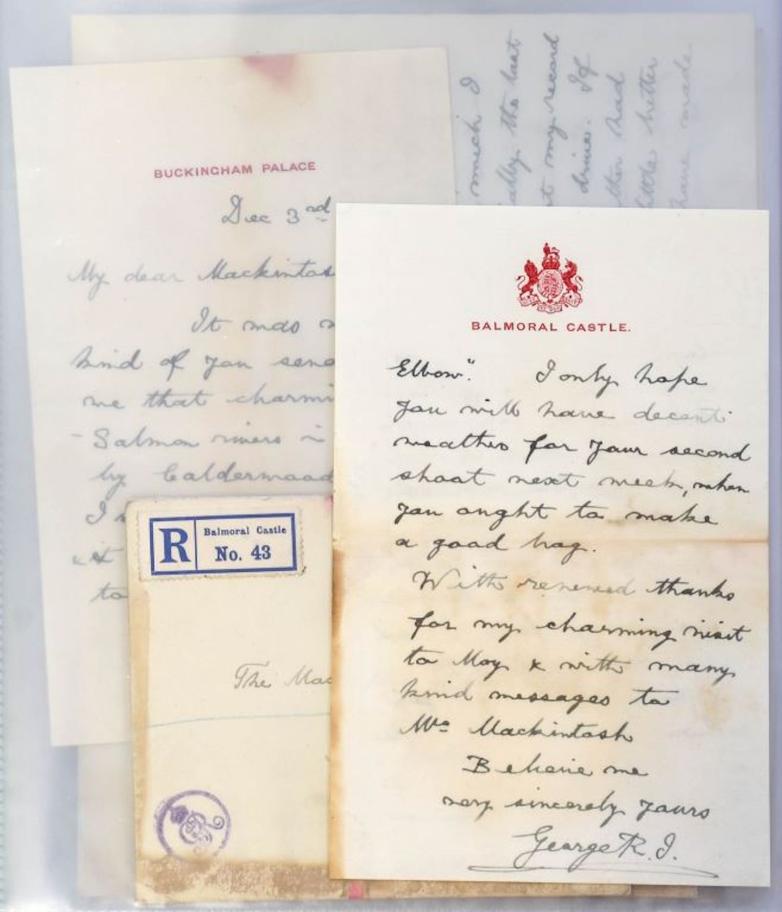 much I
ally the last
t my record
drive. If
ther had
little better
have made
BUCKINGHAM PALACE
Dec 3rd
My dear Mackintos
It was
kind of you send
me that charmi
"Salmon rivers i
by Calderwood
I
it
to
R
Balmoral Castle
No. 43
The Mac
BALMORAL CASTLE.
Elbow". I only hope
you will have decent
weather for your second
shoot next week, when
you ought to make
a good bag.
With renewed thanks
for my charming visit
to Moy & with many
kind messages to
Mrs Mackintosh
Believe me
very sincerely yours
George R.I.